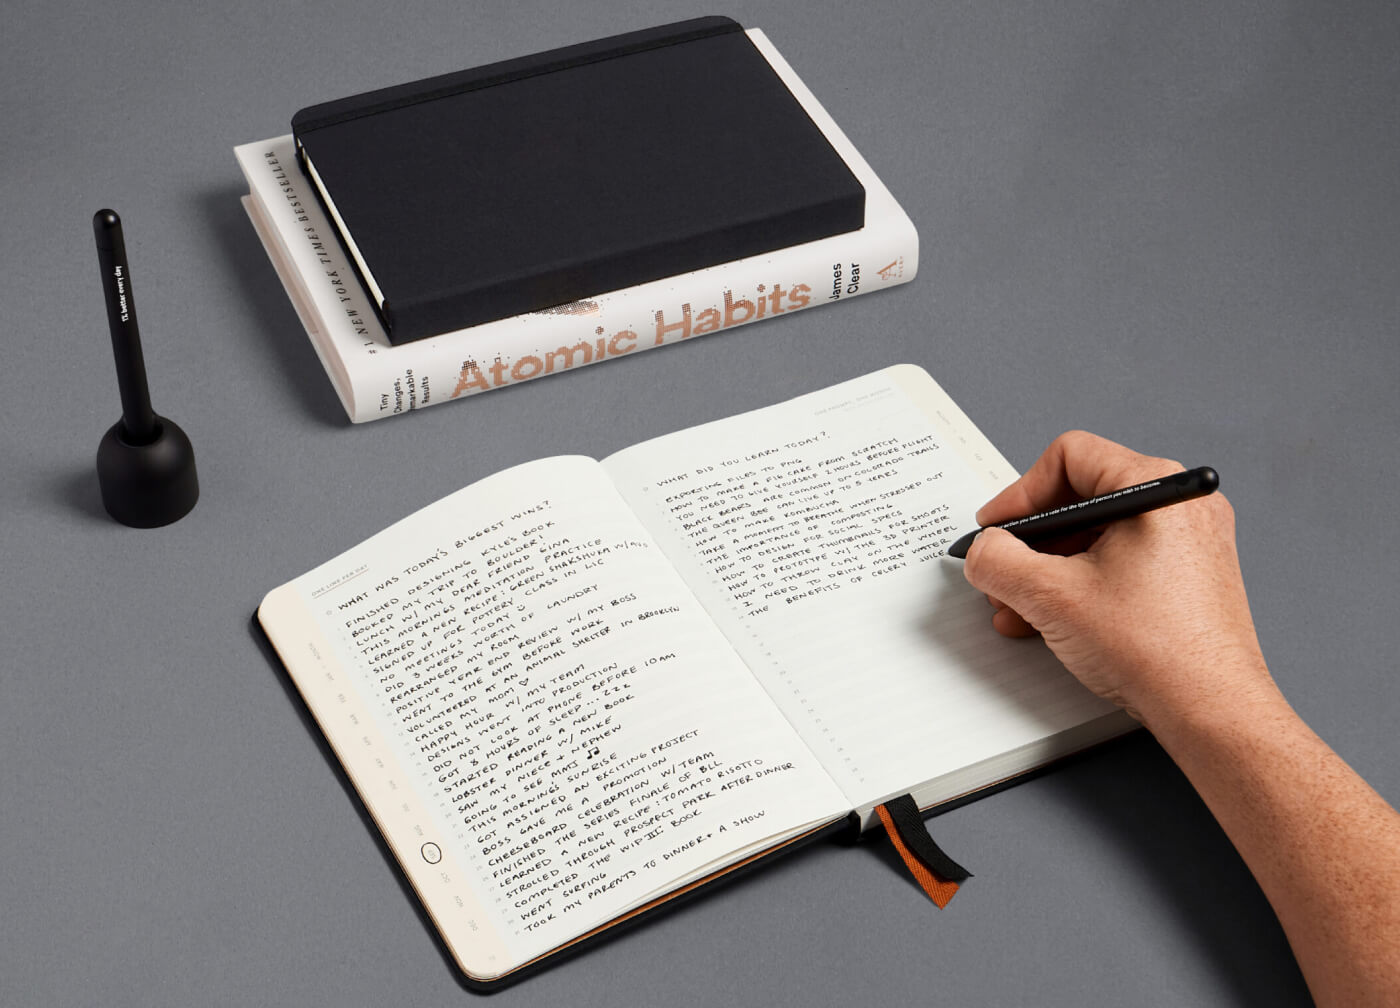 1% better every day
#1 NEW YORK TIMES BESTSELLER
Tiny
Changes,
Remarkable
Results
Atomic Habits
James
Clear
AVERY
ONE LINE PER DAY
WHAT WAS TODAY'S BIGGEST WINS?
FINISHED DESIGNING KYLE'S BOOK
BOOKED MY TRIP TO BOULDER!
LUNCH W/ MY DEAR FRIEND GINA
THIS MORNINGS MEDITATION PRACTICE
LEARNED A NEW RECIPE: GREEN SHAKSHUKA W/
SIGNED UP FOR POTTERY CLASS IN LIC
NO MEETINGS TODAY
DID 3 WEEKS WORTH OF LAUNDRY
REARRANGED MY ROOM
POSITIVE YEAR END REVIEW W/ MY BOSS
WENT TO THE GYM BEFORE WORK
VOLUNTEERED AT AN ANIMAL SHELTER IN BROOKLYN
CALLED MY MOM ♡
HAPPY HOUR W/ MY TEAM
DESIGNS WENT INTO PRODUCTION
DID NOT LOOK AT PHONE BEFORE 10AM
GOT 8 HOURS OF SLEEP...ZZZ
STARTED READING A NEW BOOK
LOBSTER DINNER W/ MIKE
SAW MY NIECE + NEPHEW
GOING TO SEE MATJ ♫
THIS MORNINGS SUNRISE
GOT ASSIGNED AN EXCITING PROJECT
BOSS GAVE ME A PROMOTION
CHEESEBOARD CELEBRATION W/ TEAM
FINISHED THE SERIES FINALE OF BLL
LEARNED A NEW RECIPE: TOMATO RISOTTO
STROLLED THROUGH PROSPECT PARK AFTER DINNER
COMPLETED THE WIP III BOOK
WENT SURFING
TOOK MY PARENTS TO DINNER + A SHOW
ONE PROMPT, ONE MONTH
WHAT DID YOU LEARN TODAY?
EXPORTING FILES TO PNG
HOW TO MAKE A FIG CAKE FROM SCRATCH
YOU NEED TO GIVE YOURSELF 2 HOURS BEFORE FLIGHT
BLACK BEARS ARE COMMON ON COLORADO TRAILS
THE QUEEN BEE CAN LIVE UP TO 5 YEARS
HOW TO MAKE KOMBUCHA
TAKE A MOMENT TO BREATHE WHEN STRESSED OUT
THE IMPORTANCE OF COMPOSTING
HOW TO DESIGN FOR SOCIAL SPECS
HOW TO CREATE THUMBNAILS FOR SHOOTS
HOW TO PROTOTYPE W/ THE 3D PRINTER
HOW TO THROW CLAY ON THE WHEEL
I NEED TO DRINK MORE WATER
THE BENEFITS OF CELERY JUICE
action you take is a vote for the type of person you wish to become.